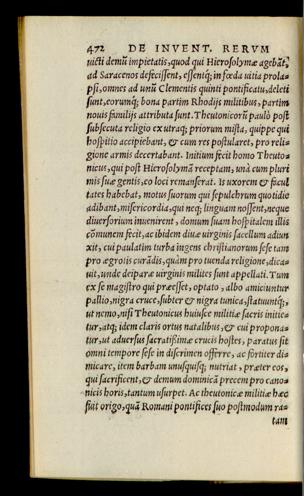 472 DE INVENT. RERVM
uicti demũ impietatis, quod qui Hierosolymæ agebãt,
ad Saracenos defecissent, essentq́; in fœda uitia prola-
psi, omnes ad unũ Clementis quinti pontificatu, deleti
sunt, eorumq́; bona partim Rhodijs militibus, partim
nouis familijs attributa sunt. Theutonicorũ paulò post
subsecuta religio ex utraq; priorum mista, quippe qui
hospitio accipiebant, & cum res postularet, pro reli-
gione armis decertabant. Initium fecit homo Theuto-
nicus, qui post Hierosolymã receptam, unà cum pluri
mis suæ gentis, eo loci remanserat. Is uxorem & facul
tates habebat, motus suorum qui sepulchrum quotidie
adibant, misericordia, qui neq; linguam nossent, neque
diuersorium inuenirent, domum suam hospitalem illis
cõmunem fecit, ac ibidem diuæ uirginis sacellum adiun
xit, cui paulatim turba ingens christianorum sese tam
pro ægrotis curãdis, quàm pro tuenda religione, dica-
uit, unde deiparæ uirginis milites sunt appellati. Tum
ex se magistro qui præesset, optato, albo amiciuntur
pallio, nigra cruce, subter & nigra tunica, statuuntq́;,
ut nemo, nisi Theutonicus huiusce militiæ sacris initie-
tur, atq; idem claris ortus natalibus, & cui propona-
tur, ut aduersus sacratissimæ crucis hostes, paratus sit
omni tempore sese in discrimen offerre, ac fortiter di-
micare, item barbam unusquisq; nutriat, præter eos,
qui sacrificent, & demum dominicã precem pro cano-
nicis horis, tantum usurpet. Ac theutonicæ militiæ hæc
fuit origo, quã Romani pontifices suo postmodum ra-
tam